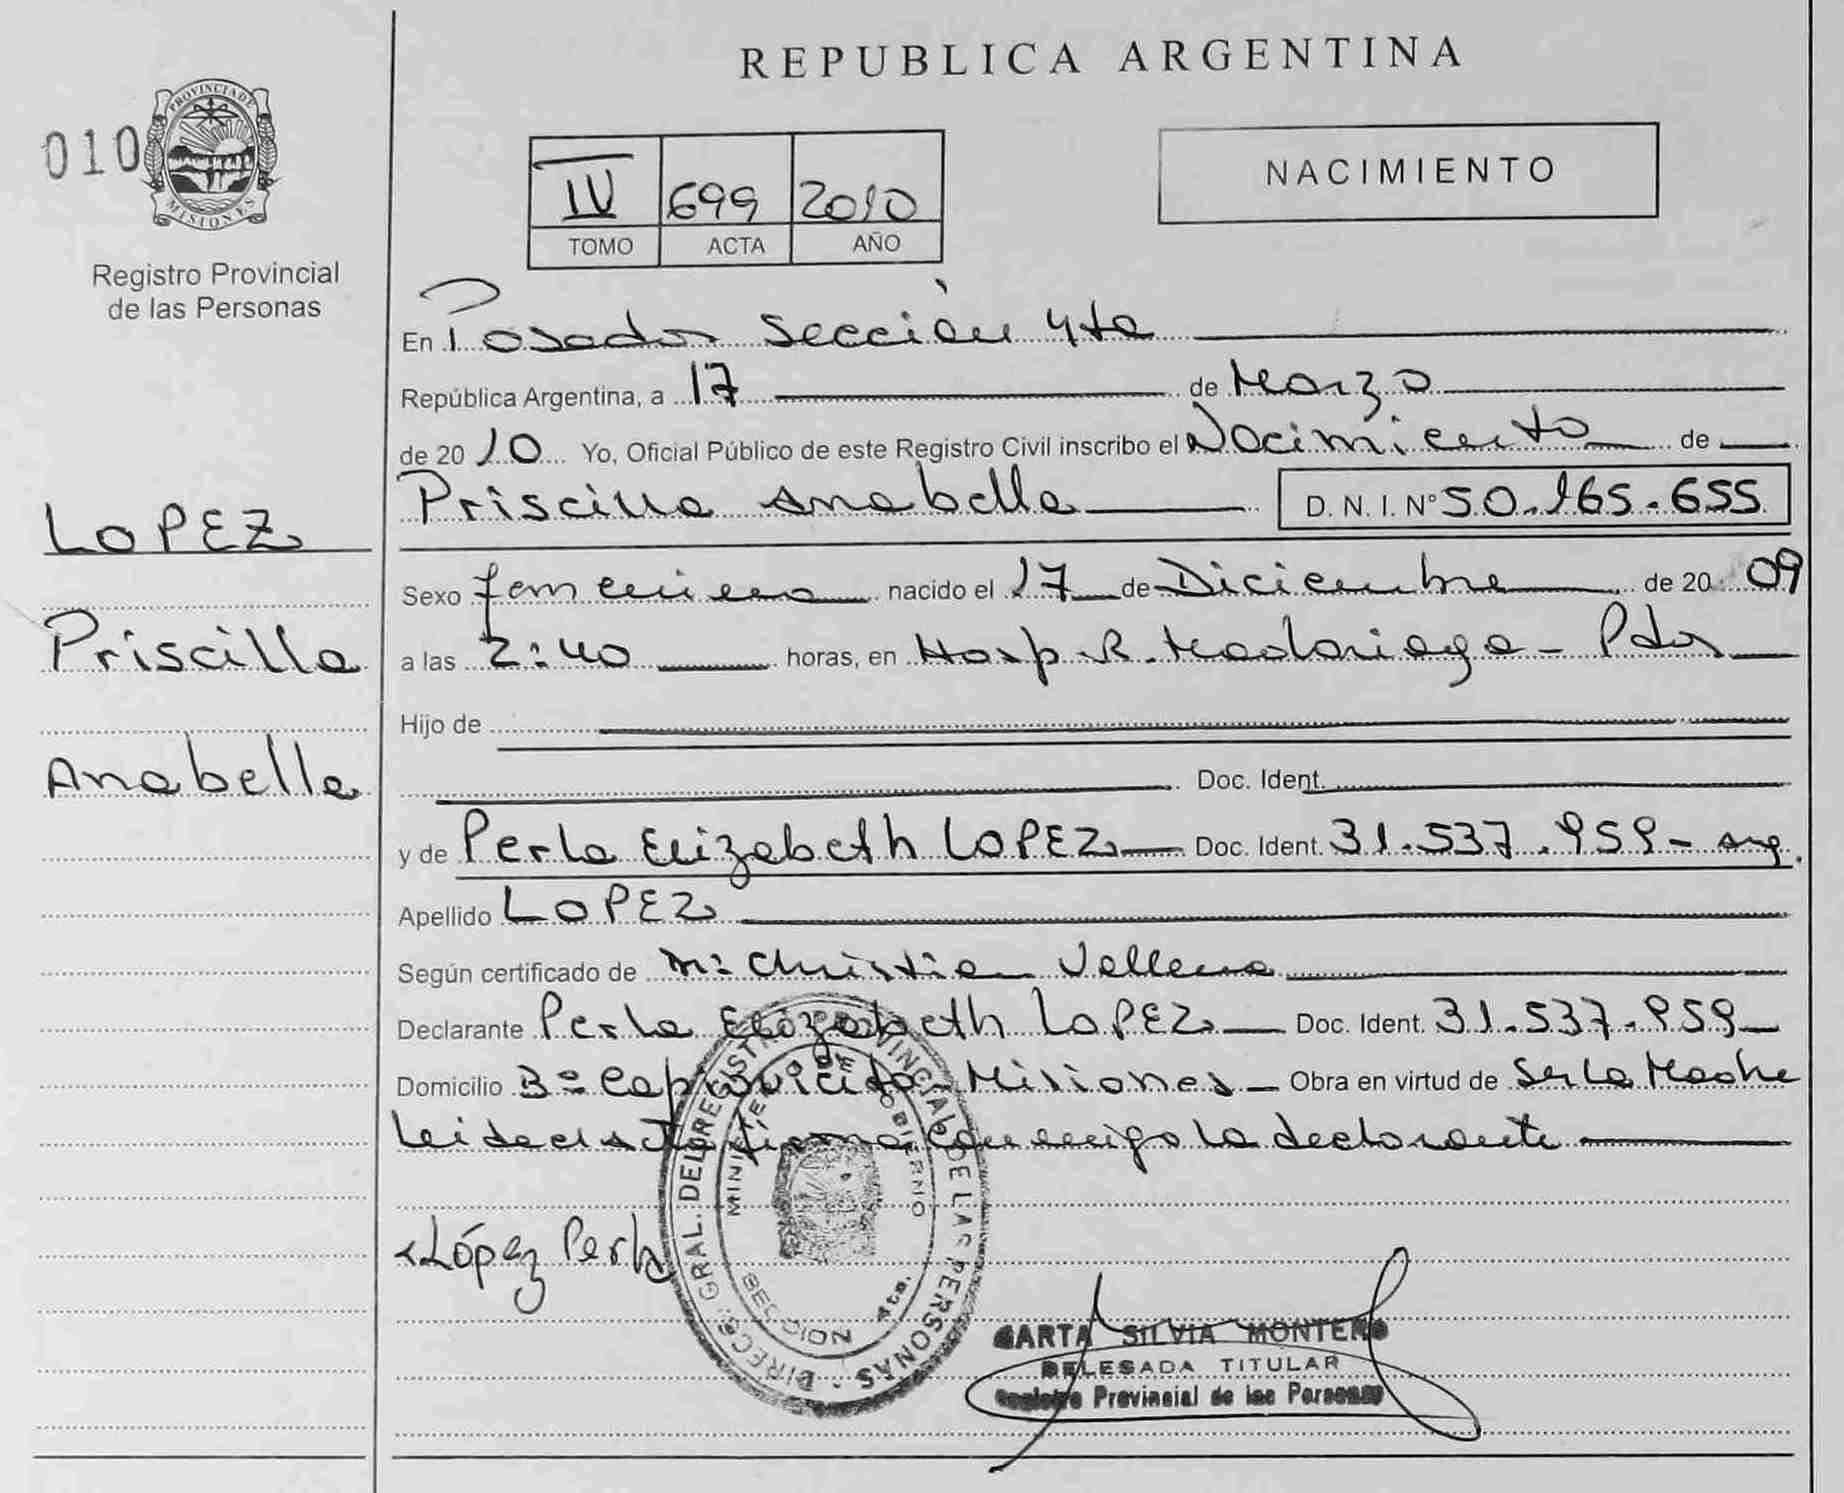 REPUBLICA ARGENTINA
010
PROVINCIA DE MISIONES
Registro Provincial
de las Personas
IV 699 2010
TOMO ACTA AÑO
NACIMIENTO
LOPEZ
Priscilla
Anabella
En Posadas Sección 4ta
República Argentina, a 17 de Marzo
de 2010 Yo, Oficial Público de este Registro Civil inscribo el Nacimiento de
Priscilla Anabella D. N. I. Nº 50.165.655
Sexo femenino nacido el 17 de Diciembre de 2009
a las 2:40 horas, en Hosp. R. Madariaga - Pdas
Hijo de
Doc. Ident.
y de Perla Elizabeth LOPEZ Doc. Ident. 31.537.959 - arg.
Apellido LOPEZ
Según certificado de Christian
Declarante Perla Elizabeth LOPEZ Doc. Ident. 31.537.959
Domicilio Misiones Obra en virtud de ser la Madre
Leida el acta firma conmigo la declarante
López Perla
DIREC. GRAL. DEL REGISTRO PROVINCIAL DE LAS PERSONAS
MINISTERIO DE GOBIERNO
SECCION 4ta.
SILVIA MONTERO
DELEGADA TITULAR
Registro Provincial de las Personas